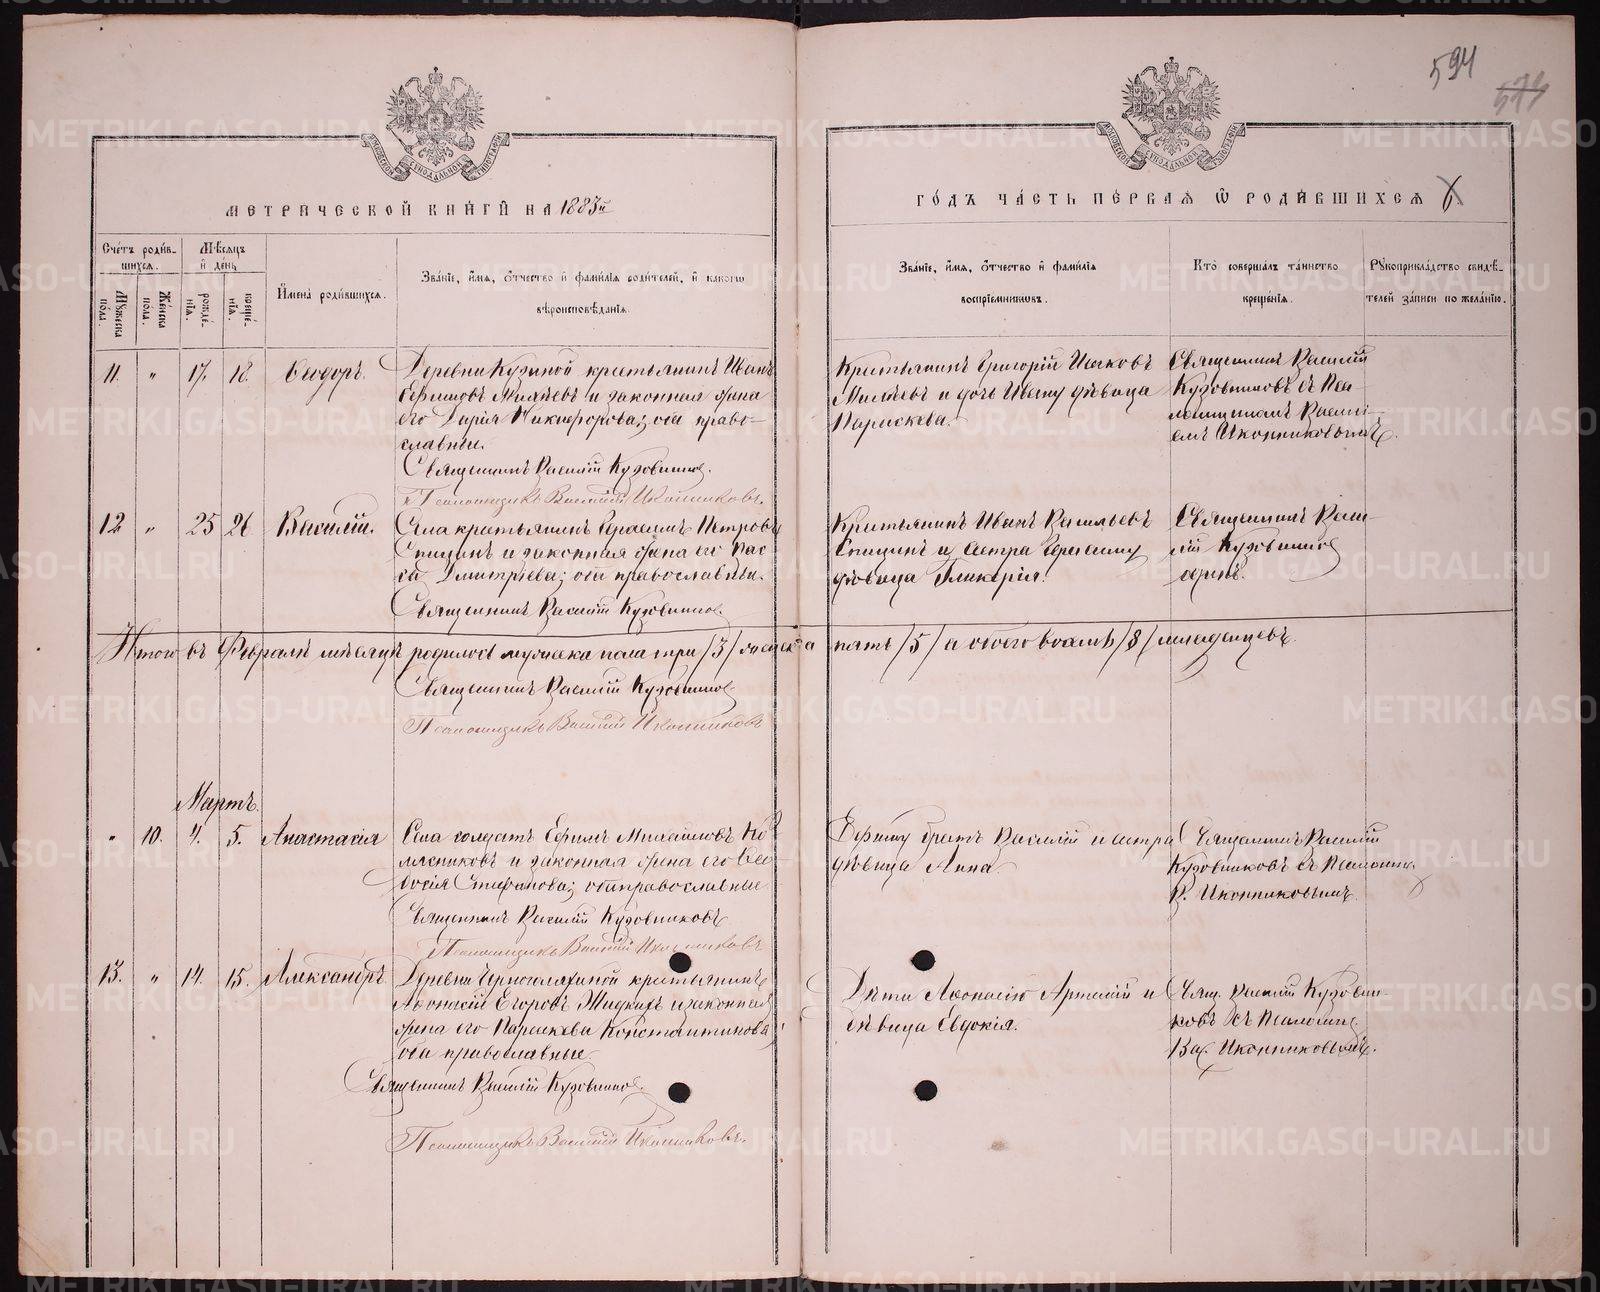 594
МОСКОВСКОЙ СѴНОДАЛЬНОЙ ТИПОГРАФІИ
МОСКОВСКОЙ СѴНОДАЛЬНОЙ ТИПОГРАФІИ
МЕТРИЧЕСКОЙ КНИГИ НА 1883й
ГОДЪ ЧАСТЬ ПЕРВАЯ Ѡ РОДИВШИХСЯ
Счетъ родив-
шихся.
Мѣсяцъ
и день
Мужеска
пола.
Женска
пола.
рожде-
нія.
креще-
нія.
Имена родившихся.
Званіе, имя, отчество и фамилія родителей, и какого
вѣроисповѣданія.
Званіе, имя, отчество и фамилія
воспріемниковъ.
Кто совершалъ таинство
крещенія.
Рукоприкладство свидѣ-
телей записи по желанію.
11. " 17. 18. Ѳеодоръ.
Деревни Кузиной крестьянинъ Иванъ
Ефимовъ и законная жена
его Дарія Никифорова; оба право-
славные.
Священникъ Василій Кузовников.
Псаломщикъ Василій Иконниковъ.
Крестьянинъ Григорій Исаковъ
и дочь Ивану дѣвица
Параскева.
Священникъ Василій
Кузовниковъ съ Пса-
ломщикомъ Васили-
емъ Иконниковымъ.
12 " 25 26 Василій.
Села крестьянинъ Герасимъ Петровъ
Спицинъ и законная жена его Вас-
са Дмитріева; оба православные.
Священникъ Василій Кузовников.
Крестьянинъ Иванъ Васильевъ
Спицинъ и сестра Герасиму
дѣвица Гликерія.
Священникъ Васи-
лій Кузовников
одинъ.
Итого въ Февралѣ мѣсяцѣ родилось мужеска пола три /3/ женска пять /5/ а обоего восемь /8/ младенцевъ.
Священникъ Василій Кузовников.
Псаломщикъ Василій Иконниковъ
Мартъ.
" 10. 4. 5. Анастасія
Села солдатъ Ефимъ Михайловъ Ко-
лесниковъ и законная жена его Ѳео-
досія Стефанова; оба православные
Священникъ Василій Кузовниковъ.
Псаломщикъ Василій Иконниковъ
Ефиму братъ Василій и сестра
дѣвица Анна.
Священникъ Василій
Кузовниковъ съ Псаломщ.
В. Иконниковымъ.
13. " 14. 15. Александръ
Деревни крестьянинъ
Аѳонасій Егоровъ Жидкихъ и законная
жена его Параскева Константинова;
оба православные.
Священникъ Василій Кузовников.
Псаломщикъ Василій Иконниковъ.
Дѣти Аѳонасію Артемій и
дѣвица Евдокія.
Свящ. Василій Кузовни-
ковъ съ Псаломщ.
Вас. Иконниковымъ.
METRIKI.GASO-URAL.RU